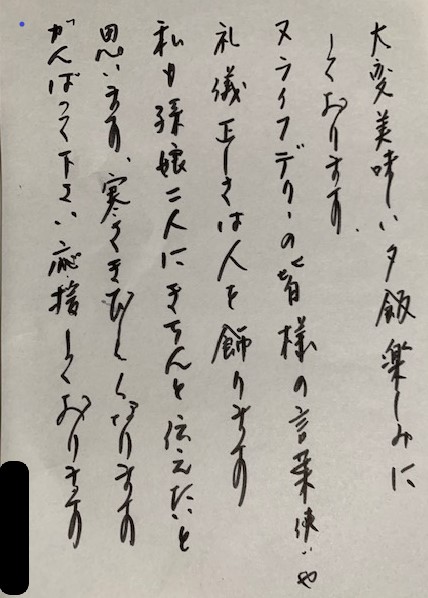 大変美味しい夕飯楽しみに
しております、
ヌライフデリーの皆様の言葉使いや
礼儀正しさは人を飾ります
私も孫娘二人にきちんと伝えたいと
思います、寒さきびしくなります
がんばって下さい応援しております